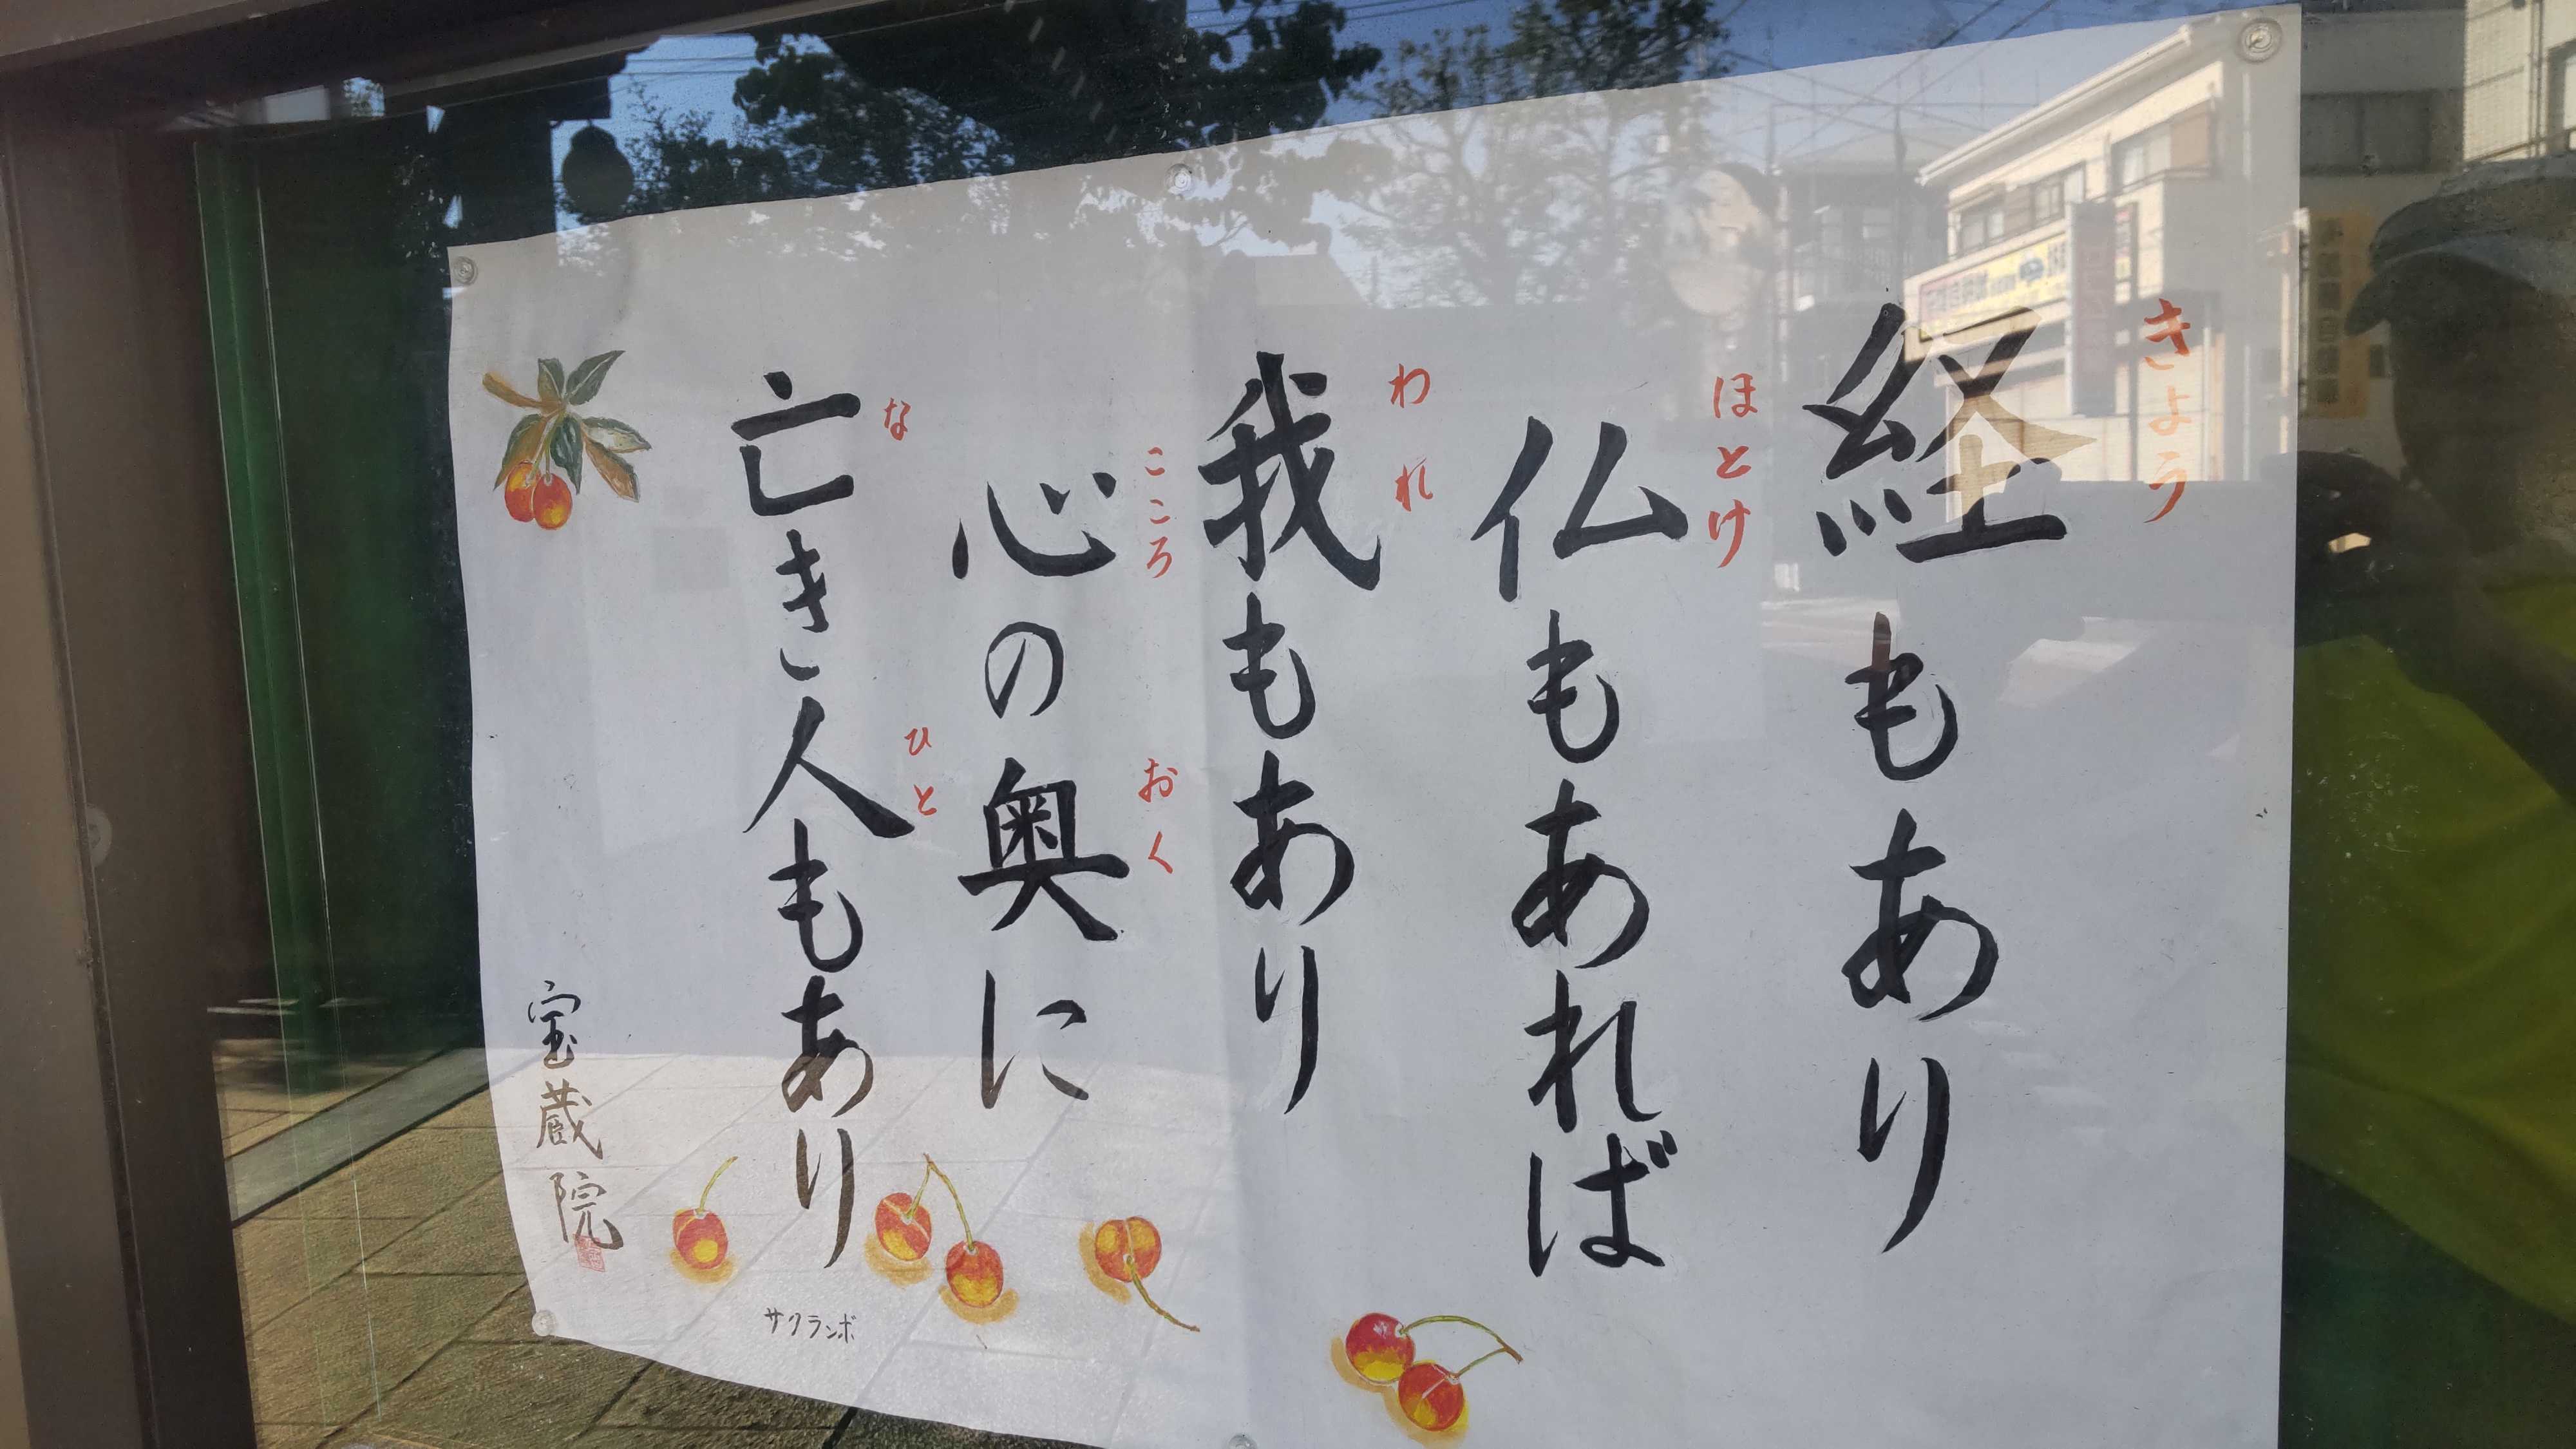 経もあり
きょう
仏もあれば
ほとけ
我もあり
われ
心の奥に
こころ
おく
亡き人もあり
な
ひと
宝蔵院
サクランボ